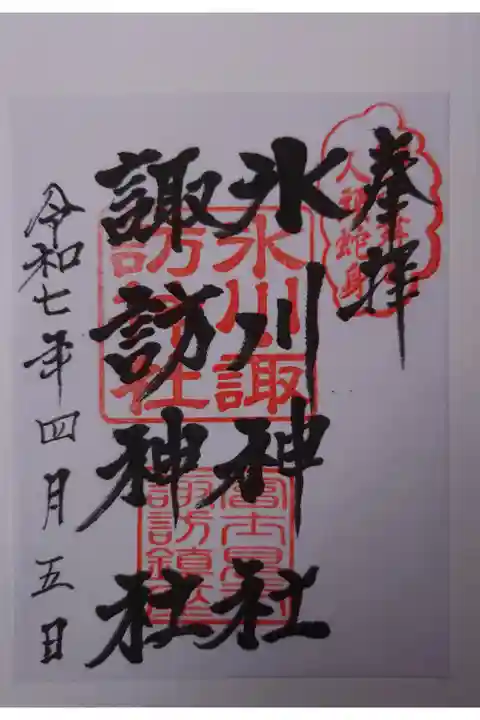 奉拝
氷川神社
諏訪神社
令和七年四月五日
氷川諏
訪神社
諏訪鎮座